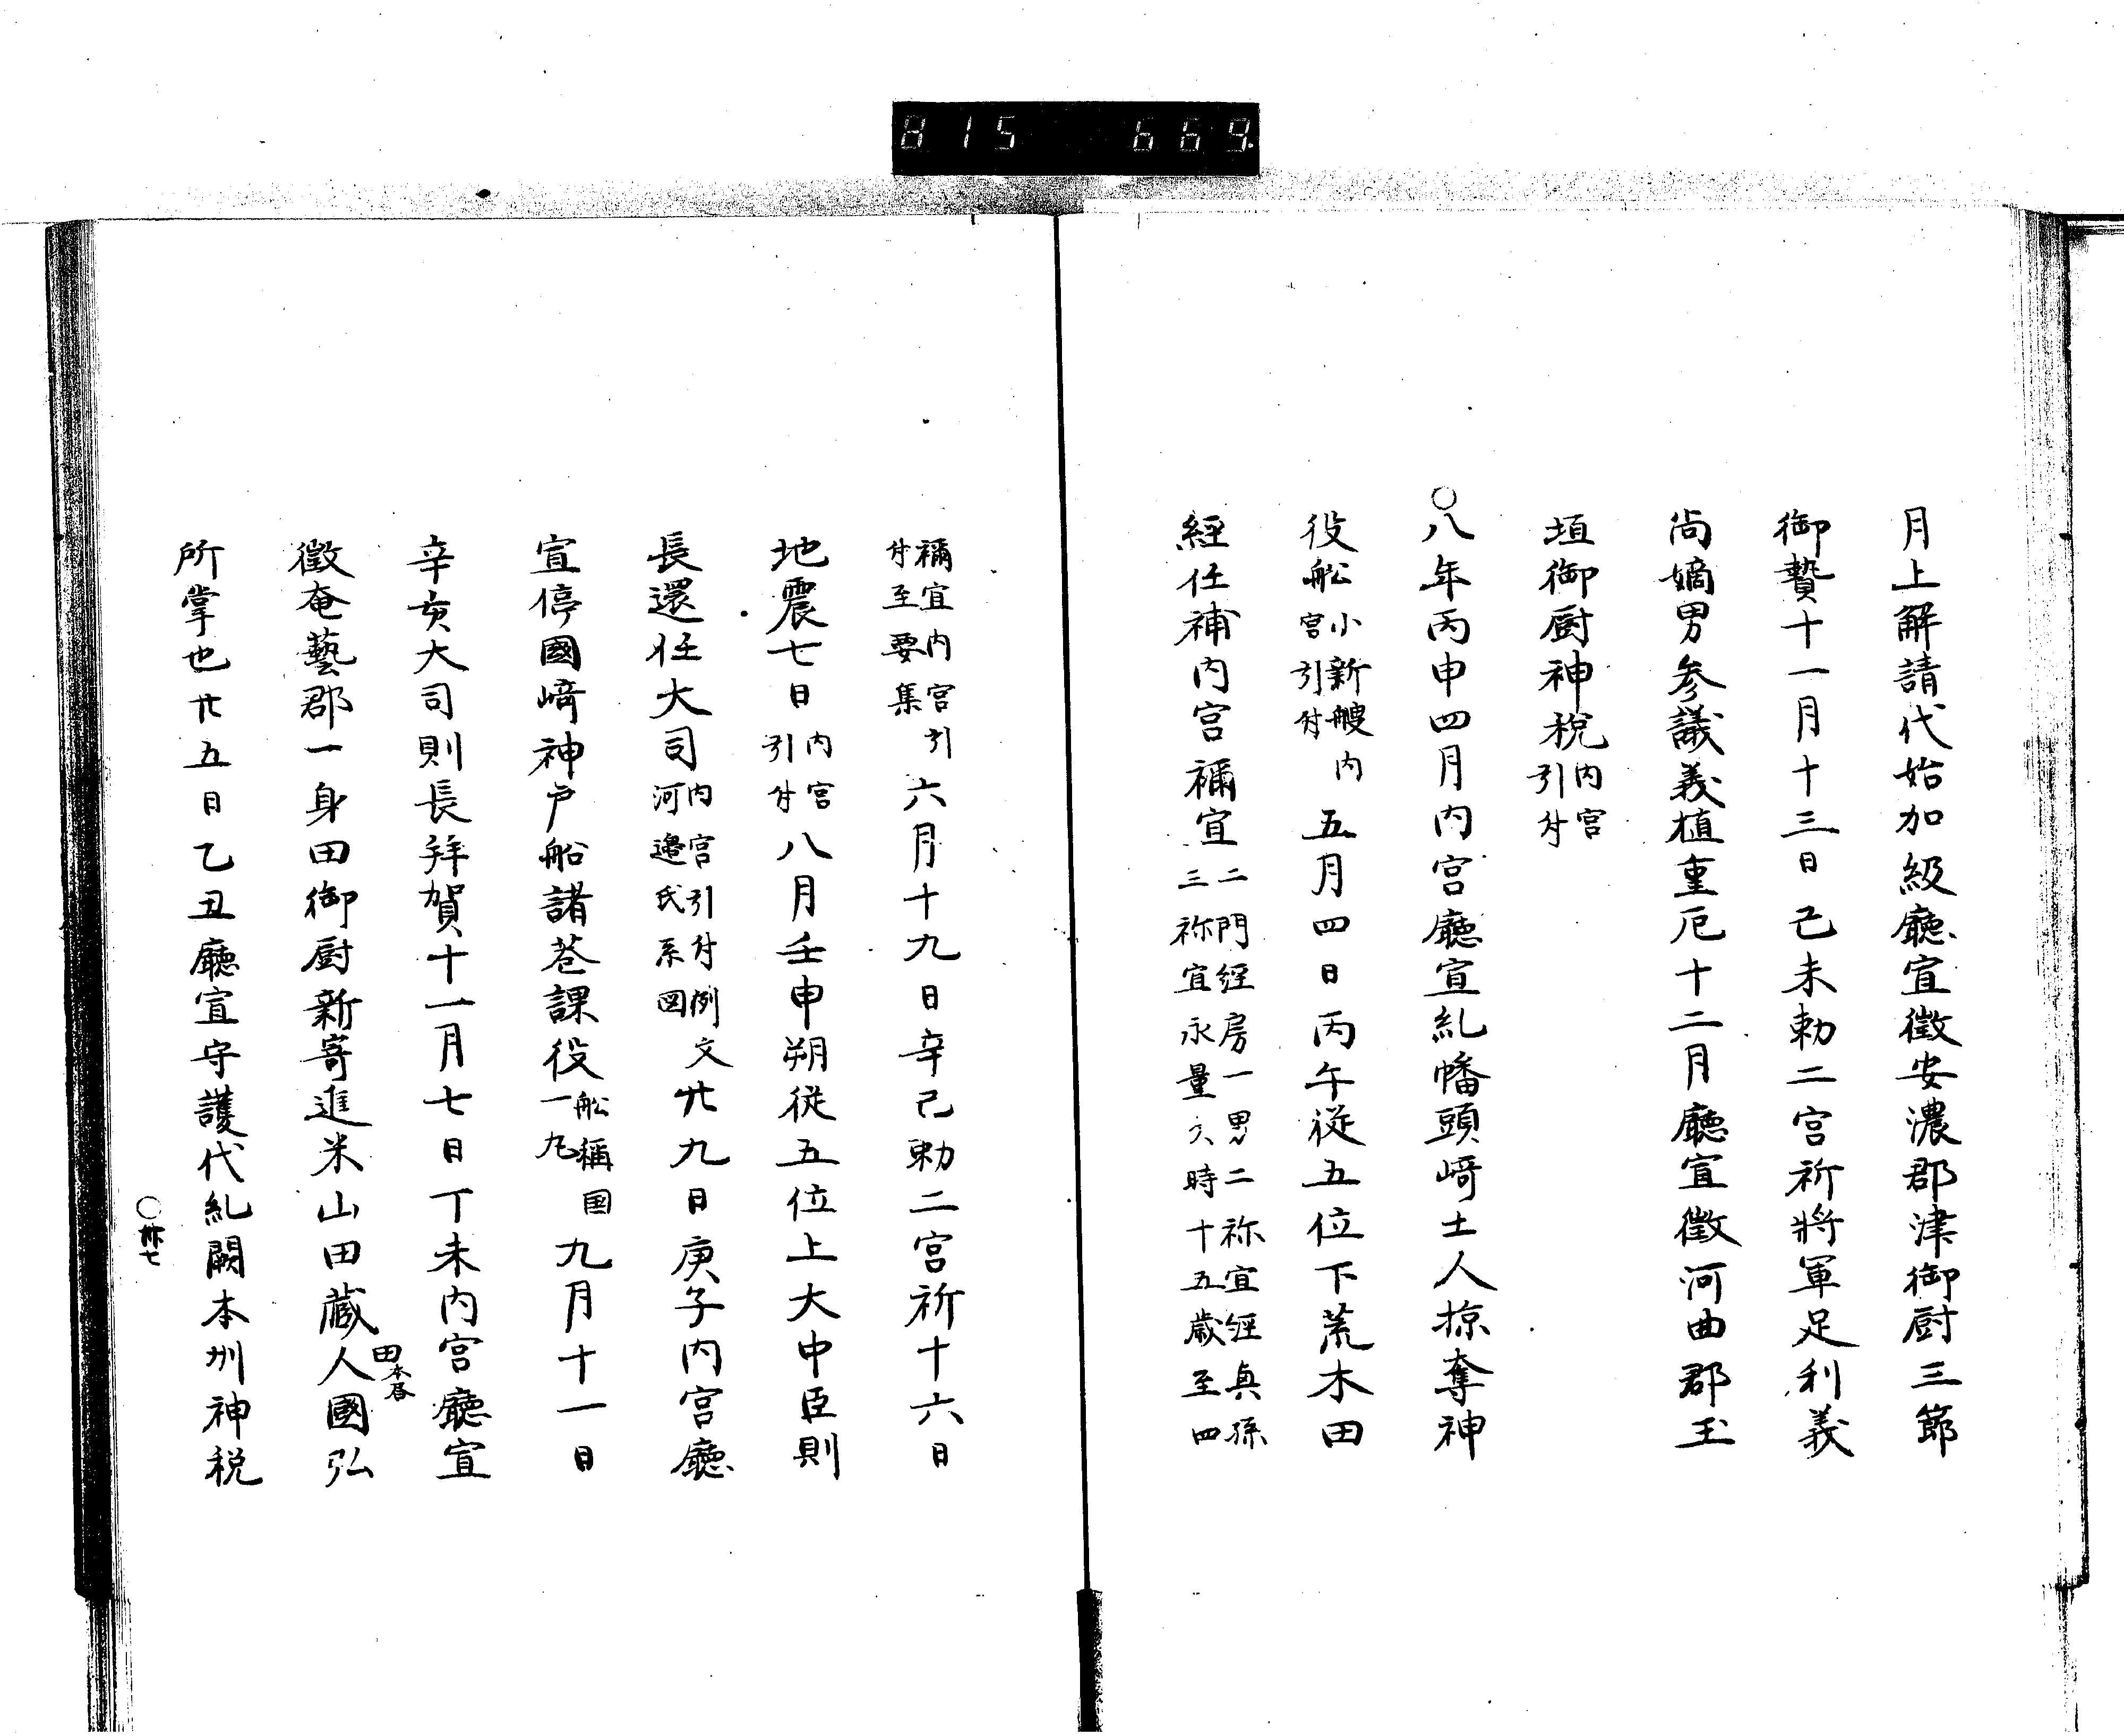 815 669.
月上解請代始加級廳宣徵安濃郡津御厨三節
御贄十一月十三日己未勅二宮祈將軍足利義
尚嫡男参議義植重厄十二月廳宣徵河曲郡玉
垣御厨神税内宮引付
○八年丙申四月内宮廳宣糺幡頭﨑土人掠奪神
役舩小新艘内宮引付五月四日丙午従五位下荒木田
經任補内宮禰宜二門經房一男二祢宜經真孫三祢宜永量六時十五歳至四
禰宜内宮引付至要集六月十九日辛己勅二宮祈十六日
地震七日内宮引付八月壬申朔従五位上大中臣則
長還任大司内宮引付例文河邉氏系図廿九日庚子内宮廳
宣停國﨑神戸船諸荅課役舩稱国一九九月十一日
辛亥大司則長拜賀十一月七日丁未内宮廳宣
徵奄藝郡一身田御厨新寄進米山田藏人國弘
田本
所掌也廿五日乙丑廳宣守護代糺闕本州神税